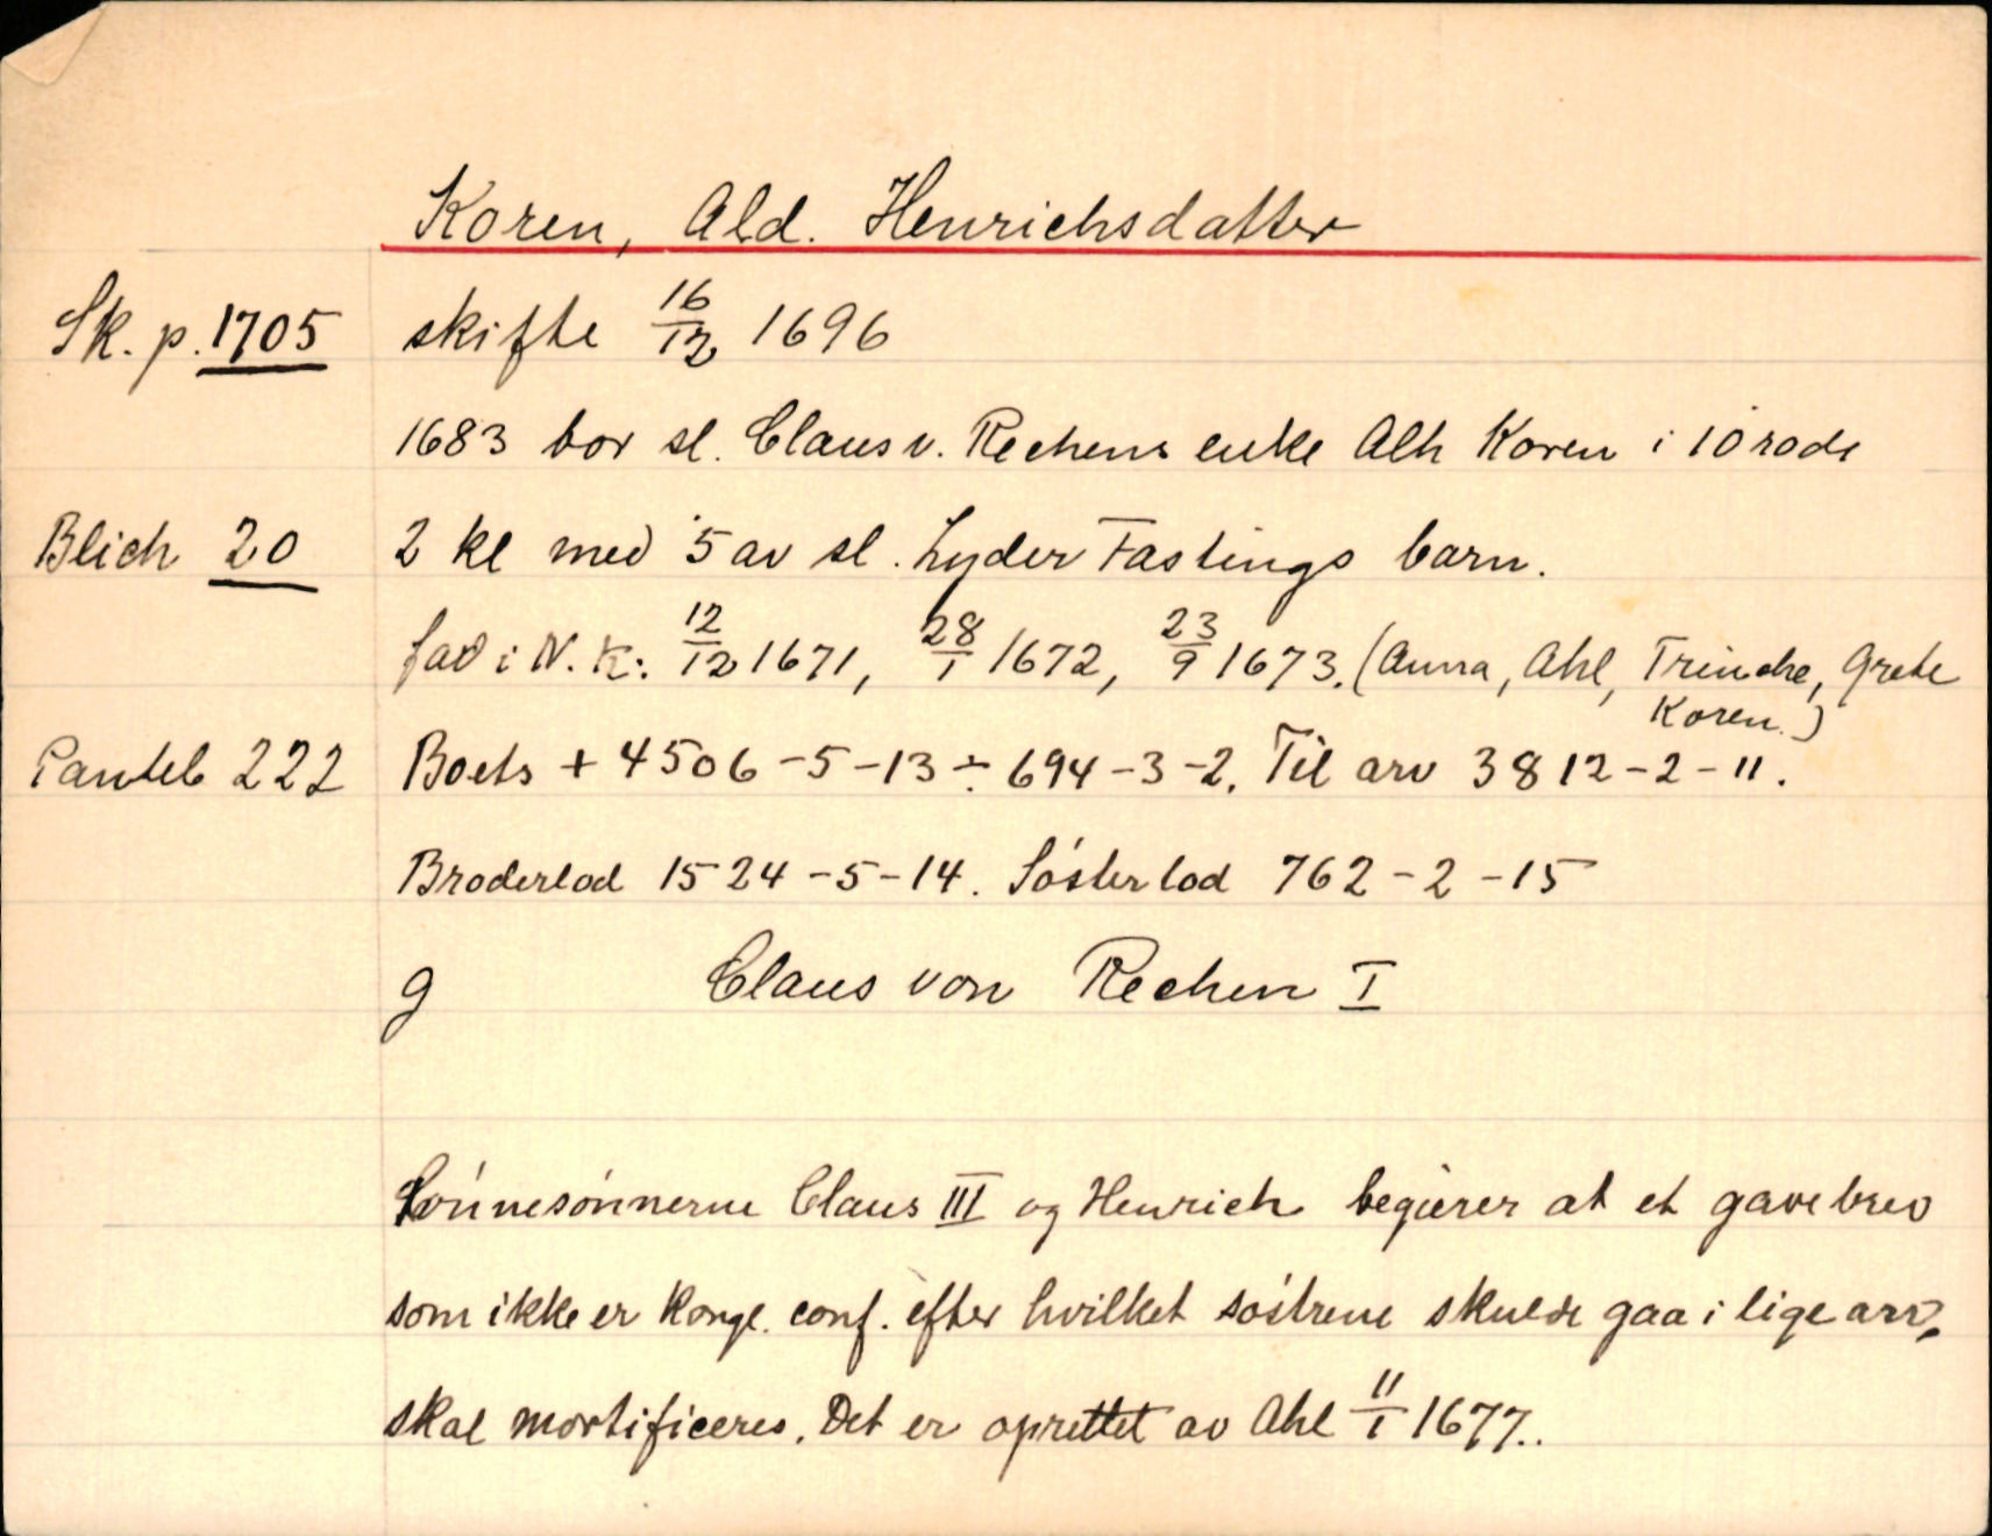 Koren, Ald. Henrichsdatter
Sk. p. 1705 skifte 16/12 1696
1683 bor sl. Claus v. Rechens enke Alh Koren i 10 rode
Blich 20 2 kl med 5 av sl. Lyder Fastings barn.
fad i N. K: 12/12 1671, 28/1 1672, 23/9 1673. (Anna, Ahl, Trinche, Grete
Koren.)
Panteb 222 Boets + 4506-5-13 ÷ 694-3-2. Til arv 3812-2-11.
Broderlod 1524-5-14. Søsterlod 762-2-15
g Claus von Rechen I
Sønnesønnerne Claus III og Henrich begierer at et gavebrev
som ikke er Kongl. conf. efter hvilket søstrene skulde gaa i lige arv,
skal mortificeres. Det er oprettet av Ahl 11/1 1677..